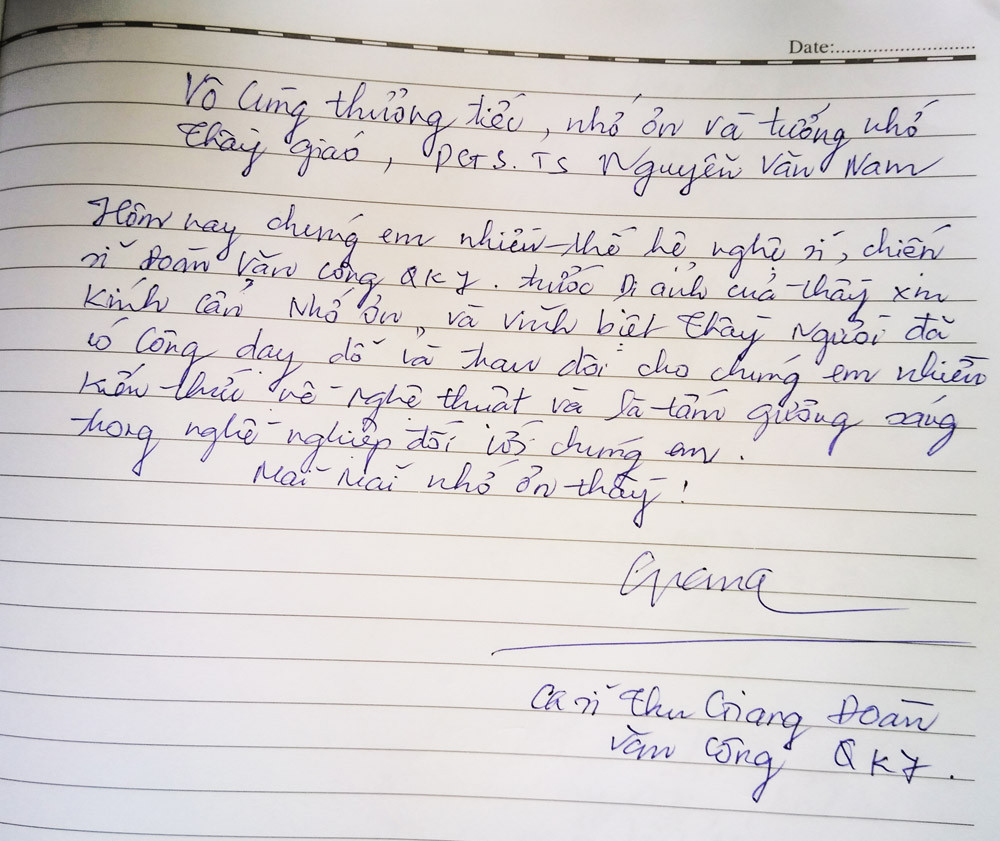 Date:
Vô Cùng thương tiếc, nhớ ơn và tưởng nhớ
Thầy giáo, PGS.TS Nguyễn Văn Nam
Hôm nay chúng em nhiều thế hệ nghệ sĩ, chiến
sĩ Đoàn Văn công QK7. trước Di ảnh của thầy xin
Kính cẩn Nhớ ơn và vĩnh biệt Thầy Người đã
có Công dạy dỗ và trau dồi cho chúng em nhiều
kiến thức về Nghệ thuật và là tấm gương sáng
trong nghề nghiệp đối với chúng em.
Mãi Mãi nhớ ơn thầy!
Giang
Ca sĩ Thu Giang Đoàn
Văn Công QK7.